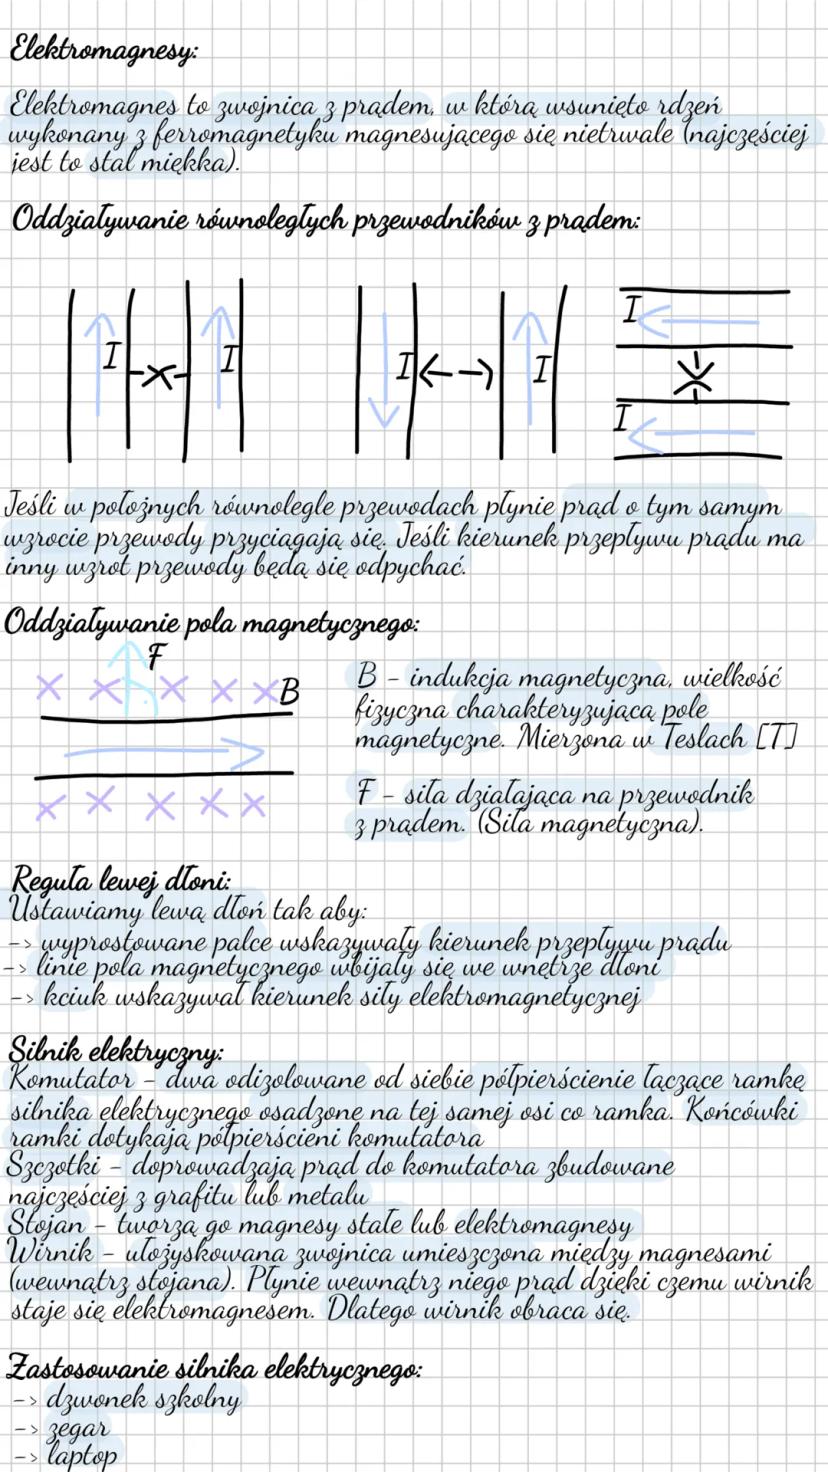 Elektromagnesy:
Elektromagnes to zwojnica z prądem, w którą wsunięto rdzeń
wykonany z ferromagnetyku magnesującego się nietrwale (najczęściej
jest to stal miękka).
Oddziaływanie równoległych przewodników z prądem:
I I I I I
I
Jeśli w położnych równolegle przewodach płynie prąd o tym samym
wzrocie przewody przyciągają się. Jeśli kierunek przepływu prądu ma
inny wzrot przewody będą się odpychać.
Oddziaływanie pola magnetycznego:
F
B
B - indukcja magnetyczna, wielkość
fizyczna charakteryzującą pole
magnetyczne. Mierzona w Teslach [T]
F - siła działająca na przewodnik
z prądem. (Siła magnetyczna).
Reguła lewej dłoni:
Ustawiamy lewą dłoń tak aby:
-> wyprostowane palce wskazywały kierunek przepływu prądu
-> linie pola magnetycznego wbijały się we wnętrze dłoni
-> kciuk wskazywał kierunek siły elektromagnetycznej
Silnik elektryczny:
Komutator - dwa odizolowane od siebie półpierścienie łączące ramkę
silnika elektrycznego osadzone na tej samej osi co ramka. Końcówki
ramki dotykają półpierścieni komutatora
Szczotki - doprowadzają prąd do komutatora zbudowane
najczęściej z grafitu lub metalu
Stojan - tworzą go magnesy stałe lub elektromagnesy
Wirnik - ułożyskowana zwojnica umieszczona między magnesami
(wewnątrz stojana). Płynie wewnątrz niego prąd dzięki czemu wirnik
staje się elektromagnesem. Dlatego wirnik obraca się.
Zastosowanie silnika elektrycznego:
-> dzwonek szkolny
-> zegar
-> laptop